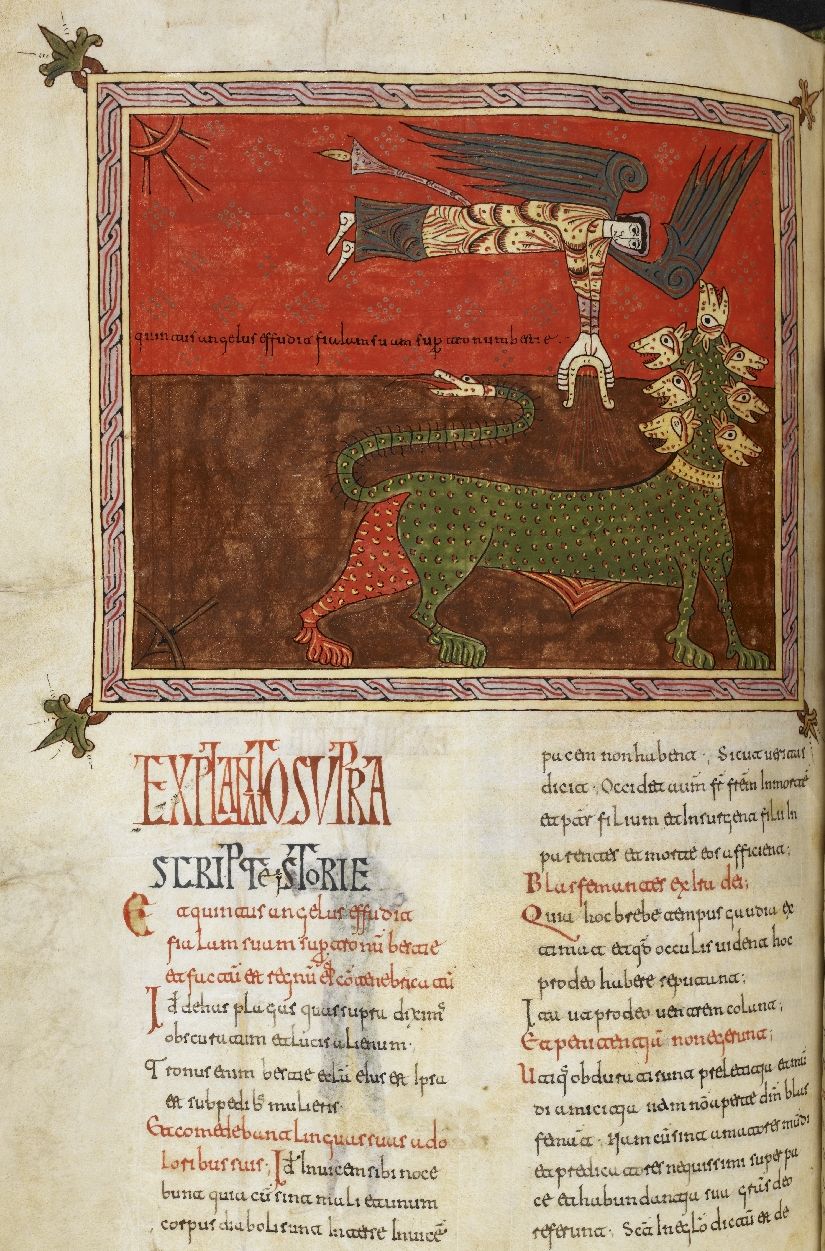 quintus angelus effudit fialam suam sup tronum bestie
EXPLANATIO SUPRA
SCRIPTE ISTORIE
Et quintus angelus effudit
fialam suam sup tronū bestie
et factū est regnū ei contenebricatū
Id de has plagas quas supra diximꝰ
obscuratum et lucis alienum.
Tronus enim bestie eclā eius est ipsa
est sub pedibꝰ mulieris.
Et comedebant linguas suas a do
loribus suis; Id invicem sibi noce
bunt quia cū sint mali et unum
corpus diaboli sunt inter se invicē
pacem non habent. Sicut
dicit. Occidet autm fr frēm in mortē
et patr filium et insurgent filii in
parentes et morte eos afficient;
Blasfemantes ex ira dei;
Quia hoc brebe tempus gaudia ex
timat et qd occulis vident hoc
pro deo habere reputant;
Ita ut pro deo ventrem colunt;
Et penitentiam non egerunt;
obdurati sunt pre letitia et mū
di amicitia nam nō aperte dm̄ blas
femant. Nam cū sint amatores mūdi
et predicatores nequissimi super pa
ce et habundantia sua deo
referunt. Scā in eglō dicāt de